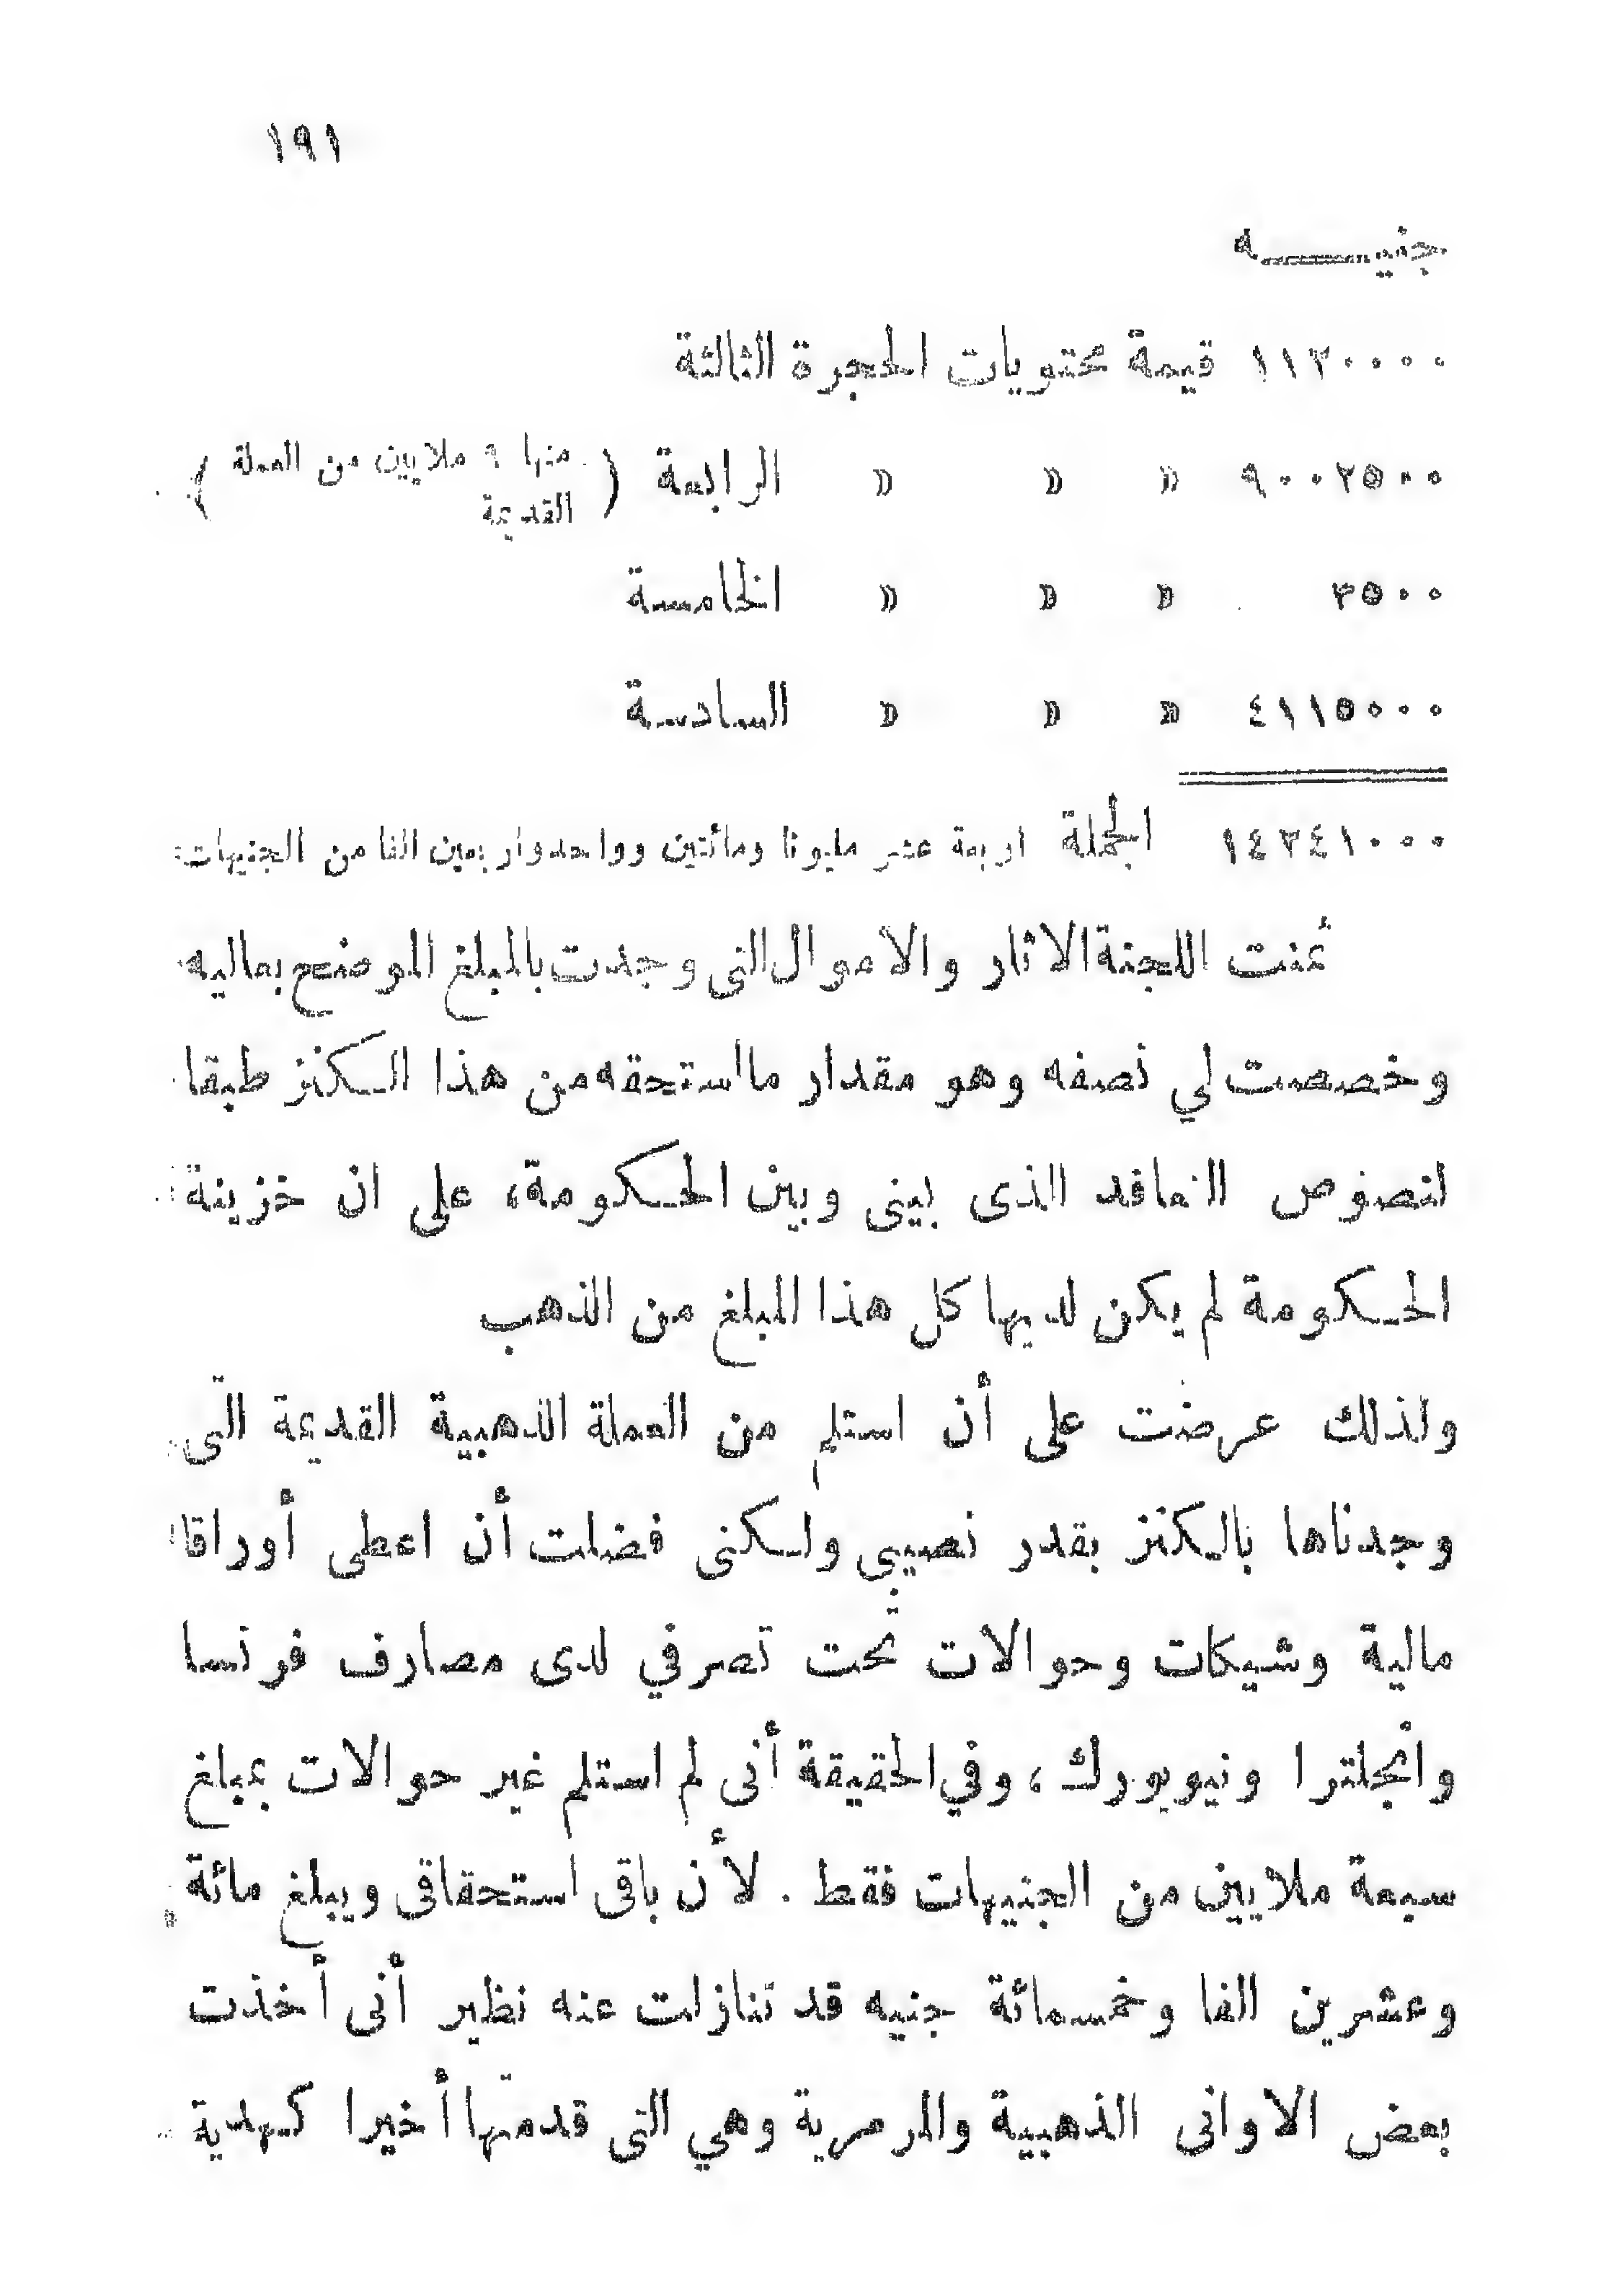 ١٩١
جنيـــه
١١٢٠٠٠٠ قيمة محتويات الحجرة الثالثة
٩٠٠٢٥٠٠ » » » الرابعة ( منها ٩ ملايين من العملة القديمة )
٣٥٠٠ » » » الخامسة
٤١١٥٠٠٠ » » » السادسة
١٤٢٤١٠٠٠ الجملة اربعة عشر مليونا ومائتين وواحد واربعين الفا من الجنيهات
ثمنت اللجنة الاثار والاموال التى وجدت بالمبلغ الموضح بعاليه
وخصصت لي نصفه وهو مقدار ما استحقه من هذا الكنز طبقا
لنصوص التعاقد الذى بينى وبين الحكومة، على ان خزينة
الحكومة لم يكن لديها كل هذا المبلغ من الذهب
ولذلك عرضت على أن استلم من العملة الذهبية القديمة التى
وجدناها بالكنز بقدر نصيبى ولكنى فضلت أن اعطى أوراقا
مالية وشيكات وحوالات تحت تصرفي لدى مصارف فرنسا
وانجلترا ونيويورك ، وفي الحقيقة أنى لم استلم غير حوالات بمبلغ
سبعة ملايين من الجنيهات فقط . لأن باقى استحقاقى ويبلغ مائة
وعشرين الفا وخمسمائة جنيه قد تنازلت عنه نظير أنى أخذت
بعض الاوانى الذهبية والمرمرية وهي التى قدمتها أخيرا كهدية